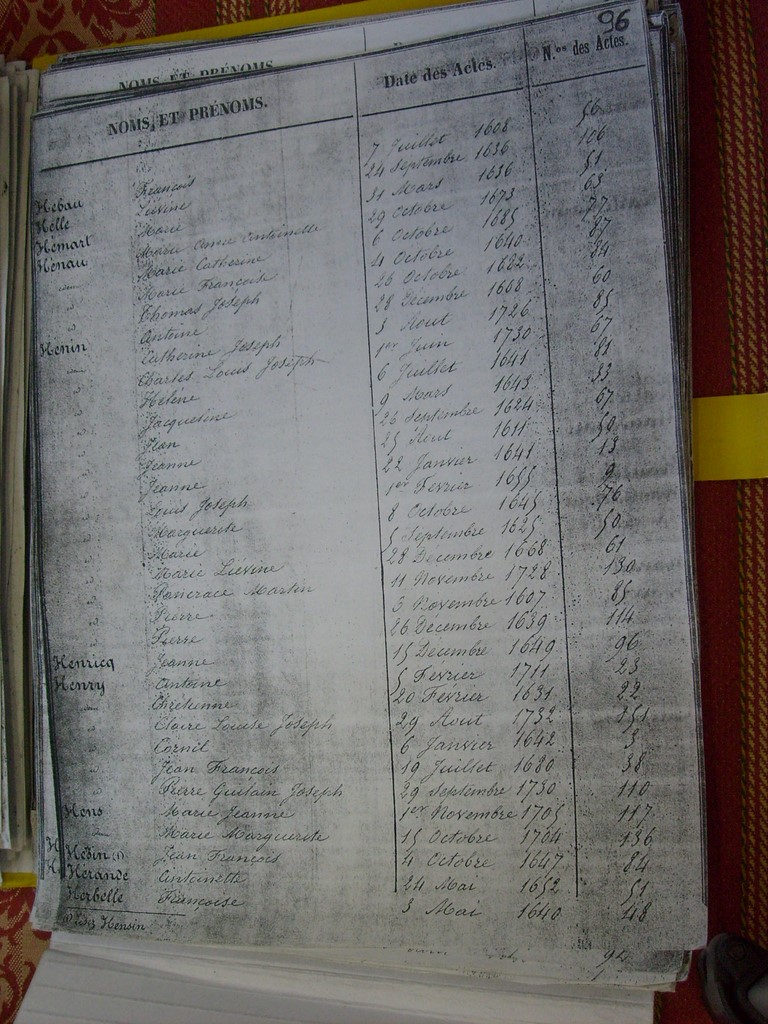 96
NOMS ET PRÉNOMS.
NOMS ET PRÉNOMS. Date des Actes. N.os des Actes.
Hebau François 7 Juillet 1608 56
Helle Livine 24 Septembre 1636 106
Hémart Marie 31 Mars 1636 51
Hénau Marie Anne Antoinette 29 Octobre 1673 63
" Marie Catherine 6 Octobre 1685 77
" Marie Françoise 4 Octobre 1640 87
" Thomas Joseph 26 Octobre 1682 84
Henin Antoine 28 Decembre 1608 60
" Catherine Joseph 3 Aout 1726 85
" Charles Louis Joseph 1er Juin 1730 67
" Hélène 6 Juillet 1641 81
" Jacqueline 9 Mars 1643 33
" Jean 26 Septembre 1624 67
" Jeanne 25 Aout 1611 50
" Jeanne 22 Janvier 1641 13
" Louis Joseph 1er Fevrier 1655 9
" Marguerite 8 Octobre 1645 76
" Marie 5 Septembre 1625 50
" Marie Livine 28 Decembre 1668 61
" Pancrace Martin 11 Novembre 1728 130
" Pierre 3 Novembre 1607 85
" Pierre 26 Décembre 1639 114
Henricq Jeanne 15 Decembre 1649 96
Henry Antoine 5 Février 1711 23
" Chretienne 20 Février 1631 22
" Claire Louise Joseph 29 Aout 1732 151
" Cornil 6 Janvier 1642 3
" Jean François 19 Juillet 1680 38
" Pierre Guilain Joseph 29 Septembre 1730 110
Hens Marie Jeanne 1er Novembre 1705 117
" Marie Marguerite 15 Octobre 1764 136
Hesin (1) Jean François 4 Octobre 1647 84
Herande Antoinette 24 Mai 1652 51
Herbelle Françoise 3 Mai 1640 118
(1) Lisez Hensin